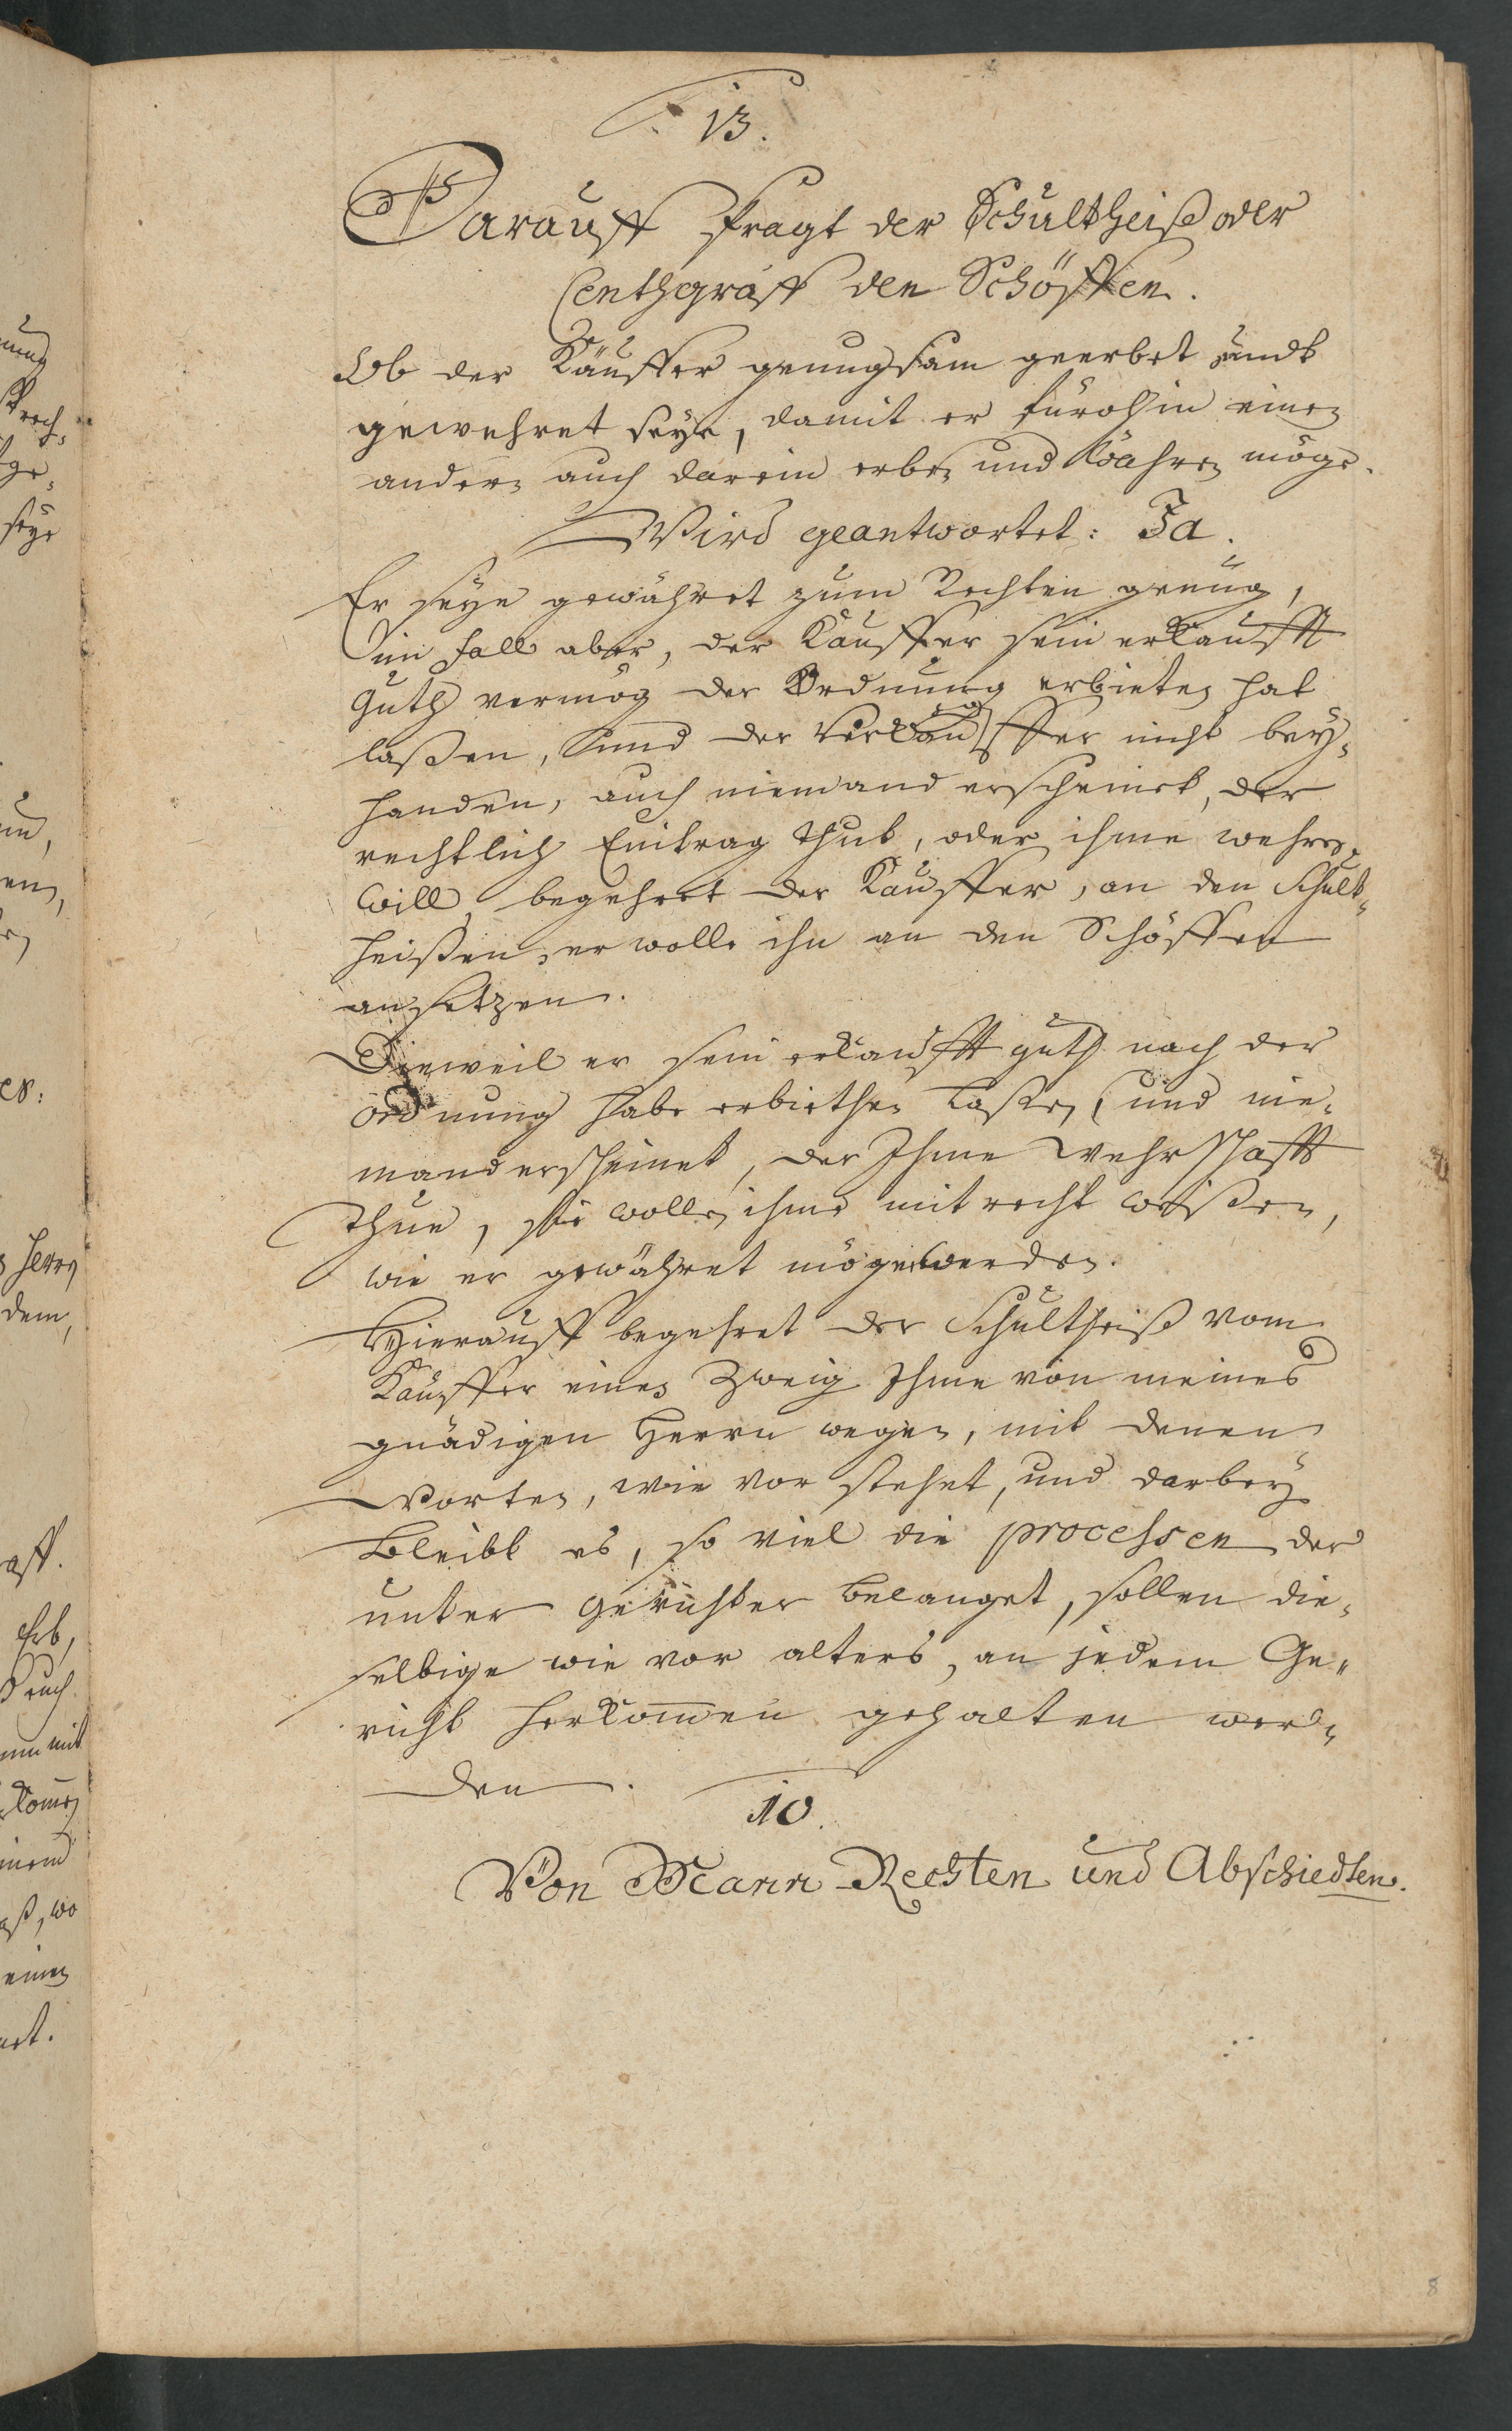 13.
Darauff fragt der Schultheiß oder
Centhgraff den Schöffen.
Ob der Käuffer genungsam geerbet undt
gewehret seye, damit er fürohin einen
andern auch darein erben und währen möge.
Wird geantwortet: Ja.
Er seye gewähret zum Rechten genug,
im fall aber, der Käuffer sein erkaufft
Guth vermög der Ordnung erbieten hat
laßen, und der Verkäuffer nicht bey-
handen, auch niemand erscheinet, der
rechtlich Eintrag thut, oder ihme wehren
will, begehret der Käuffer, an den Schult-
heißen, er wolle ihn an den Schöffen
ansetzen.
Dieweil er sein erkaufft guth nach der
ordnung habe erbiethen laßen, und nie-
mand erscheinet, der Ihme wehrschafft
thue, sie wollen ihme mit recht weißen,
wie er gewähret möge werden.
Hierauff begehret der Schultheiß vom
Käuffer einen Zweig Ihme von meines
gnädigen Herrn wegen, mit denen
Worten, wie vor stehet, und darbey
bleibt es, so viel die processen der
unter Gerichter belanget, sollen die-
selbige wie vor alters, an jedem Ge-
richt herkommen gehalten wer-
den.
10.
Von Mann Rechten und Abschiedten.
8